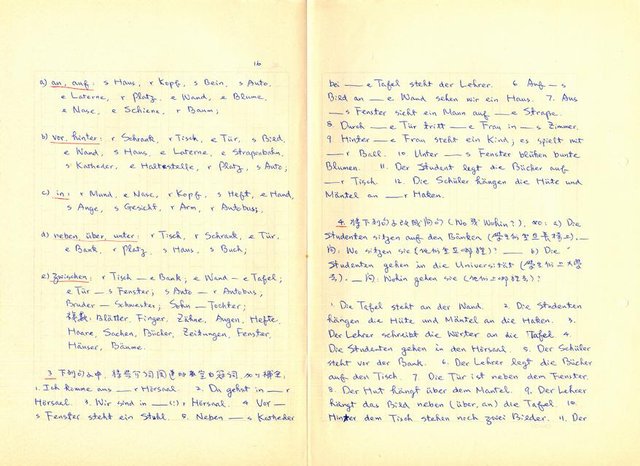 16
a) an, auf: s Haus, r Kopf, s Bein, s Auto,
e Laterne, r Platz, e Wand, e Blume,
e Nase, e Schiene, r Baum;
b) vor, hinter: r Schrank, r Tisch, e Tür, s Bild,
e Wand, s Haus, e Laterne, e Straßenbahn,
s Katheder, e Haltestelle, r Platz, s Auto;
c) in: r Mund, e Nase, r Kopf, s Heft, e Hand,
s Auge, s Gesicht, r Arm, r Autobus,
d) neben, über, unter: r Tisch, r Schrank, e Tür,
e Bank, r Platz, s Haus, s Buch;
e) zwischen: r Tisch — e Bank; e Wand – e Tafel;
e Tür — s Fenster; s Auto — r Autobus,
Bruder – Schwester; Sohn — Tochter;
Blätter, Finger, Zähne, Augen, Hefte
Haare, Sachen, Bücher, Zeitungen, Fenster
Häuser, Bäume.
3. 下列句子中,
1. Ich komme aus ___ r Hörsaal. 2. Du gehst in ___ r
Hörsaal. 3. Wir sind in ___ r Hörsaal. 4. Vor ___
s Fenster steht ein Stuhl. 5. Neben ___ s Katheder
bei ___ e Tafel steht der Lehrer. 6. Auf ___ s
Bild an ___ e Wand sehen wir ein Haus. 7. Aus
___ s Fenster sieht ein Mann auf ___ e Straße.
8. Durch ___ e Tür tritt ___ e Frau in ___ s Zimmer.
9. Hinter ___ e Frau steht ein Kind; es spielt mit
___ r Ball. 10. Unter ___ s Fenster blühen bunte
Blumen. 11. Der Student legt die Bücher auf
___ r Tisch. 12. Die Schüler hängen die Hüte und
Mäntel an ___ r Haken.
4. 将下列句子改成问句 (Wo 或 Wohin?), 如: a) Die
Studenten sitzen auf den Bänken (学生们坐在长椅上).
问. Wo sitzen sie (他们坐在哪里)? b) Die
Studenten gehen in die Universität (学生们上大学
去). 问. Wohin gehen sie (他们上哪里去)?
1. Die Tafel steht an der Wand. 2. Die Studenten
hängen die Hüte und Mäntel an die Haken. 3.
Der Lehrer schreibt die Wörter an die Tafel. 4.
Die Studenten gehen in den Hörsaal. 5. Der Schüler
steht vor der Bank. 6. Der Lehrer legt die Bücher
auf den Tisch. 7. Die Tür ist neben dem Fenster.
8. Der Hut hängt über dem Mantel. 9. Der Lehrer
hängt das Bild neben (über, an) die Tafel. 10.
Hinter dem Tisch stehen noch zwei Bilder. 11. Der